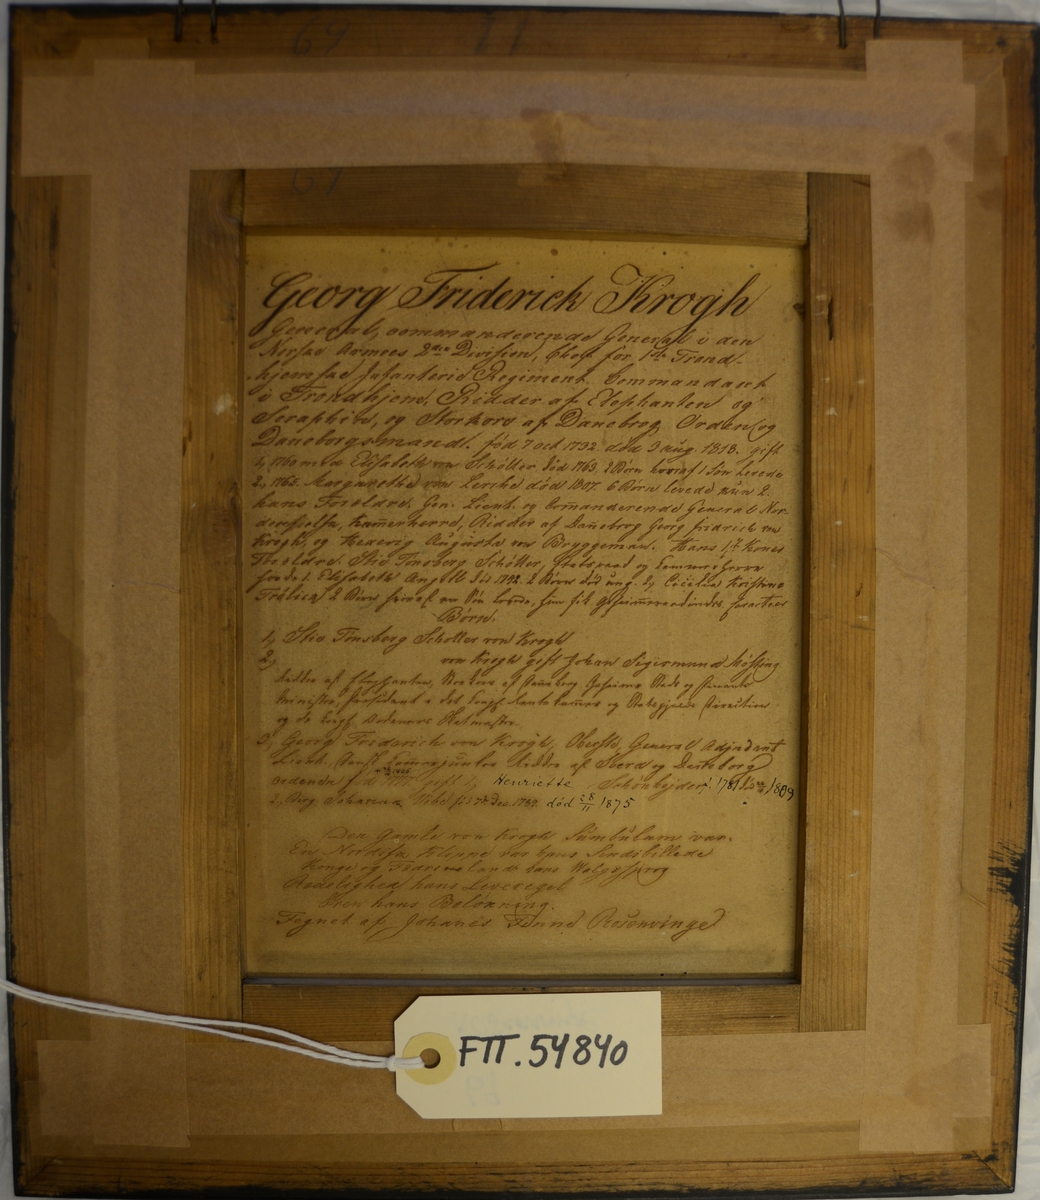 64 11
67
Georg Friderich Krogh
General, commanderende General i den
Norske Armees 2den Division, Chef for 1ste Trond-
hjemske Infanterie Regiment. Commandant
i Trondhjem. Ridder af Elephanten og
Seraphin, og Storkors af Danebrog Orden, og
Daneborgsmand. fód 7 oct 1732 død 3 aug. 1818. gift
1, 1760 med Elisabeth von Schöller död 1763. 2 Börn hvoraf 1 Sön levede
2, 1765. Margarethe von Lerche död 1807. 6 Börn levede nun 2.
hans Foreldre. Gen. Lieut. og Comanderende General Nor-
denfielss, Kamerherre, Ridder af Danebrog Georg fridrich von
Krogh, og Hedevig Augusta von Bryggeman. Hans 1ste Kones
Foreldre. Stie Tonsberg Schöller, Etatsraad og Cammerherre
förde 1. Elisabeth Angell död 1742. 2 Börn död ung. 2, Cecilia Kristine
Frölich 2 Börn hvoraf en Sön levede, hun fik geheimeraadindes
Börn.
1, Stie Tonsberg Schöller von Krogh
2, von Krogh gift Johan Sigismund Mösting
Ridder af Elephanten, Storkors af Daneborg Geheime Stats og
minister, President i det kongl. Rentekammer og
og de kongl. Hofmester.
3, Georg Friderich von Krogh, Oberste, General Adjudant
Lieut. kammerjunker Ridder af Sverd og Daneborg
ordenen fód gift 1, Henriette Schönhejder, f. 1781 död 1809
2. Birg. Johanna död 28/11 1875
Den Gamle von Krogh Sümbülum var.
En Nordisk Klippe var hans Sindbillede
Konge og Födreneland hans Valgsprog
Redelighed hans Leveregel
hans Belönning.
Tegnet af Johanes Finne Rosenvinge
FTT.54840